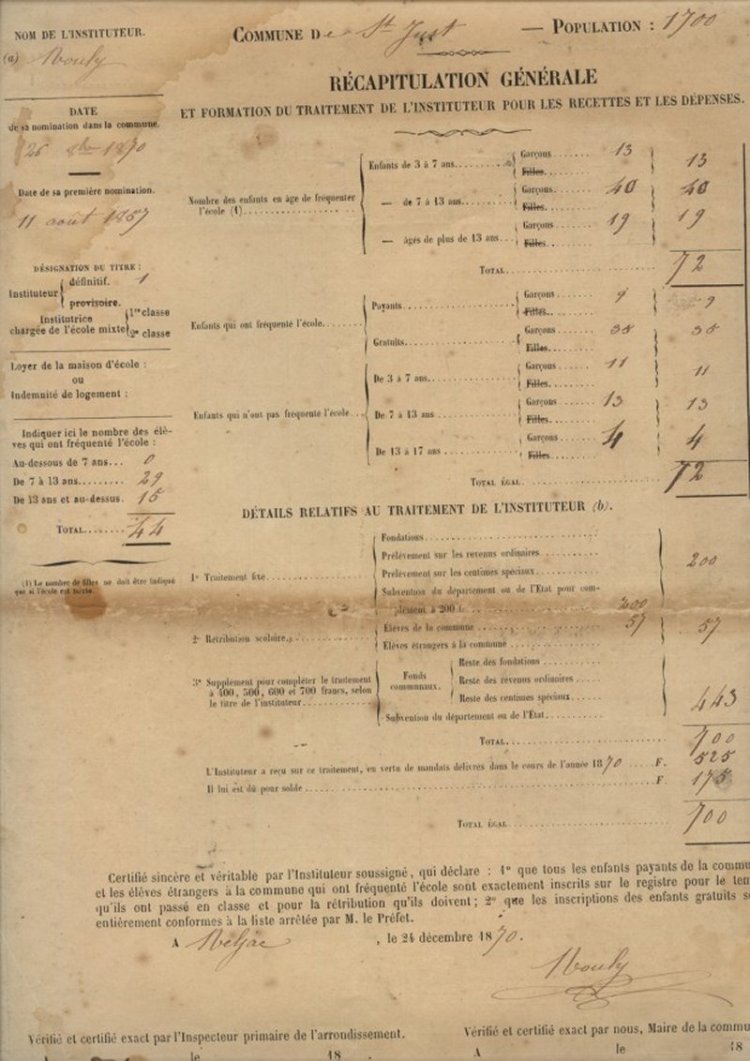 NOM DE L'INSTITUTEUR.
(a) Mouly
DATE
de sa nomination dans la commune.
26 1870
Date de sa première nomination.
11 aout 1857
DÉSIGNATION DU TITRE :
Instituteur { définitif. 1
provisoire.
Institutrice chargée de l'école mixte { 1re classe
2e classe
Loyer de la maison d'école :
ou
Indemnité de logement :
Indiquer ici le nombre des élè-
ves qui ont fréquenté l'école :
Au-dessous de 7 ans... 0
De 7 à 13 ans........ 29
De 13 ans et au-dessus. 15
TOTAL........ 44
(1) Le nombre de filles ne doit être indiqué
que si l'école est mixte.
COMMUNE De St Just — POPULATION : 1700
RÉCAPITULATION GÉNÉRALE
ET FORMATION DU TRAITEMENT DE L'INSTITUTEUR POUR LES RECETTES ET LES DÉPENSES.
Nombre des enfants en âge de fréquenter
l'école (1)
Enfants de 3 à 7 ans. { Garçons 13 } 13
Filles
— de 7 à 13 ans { Garçons 40 } 40
Filles
— âgés de plus de 13 ans { Garçons 19 } 19
Filles
TOTAL 72
Enfants qui ont fréquenté l'école
Payants { Garçons 9 } 9
Filles
Gratuits { Garçons 35 } 35
Filles
Enfants qui n'ont pas fréquenté l'école
De 3 à 7 ans { Garçons 11 } 11
Filles
De 7 à 13 ans { Garçons 13 } 13
Filles
De 13 à 17 ans { Garçons 4 } 4
Filles
TOTAL ÉGAL 72
DÉTAILS RELATIFS AU TRAITEMENT DE L'INSTITUTEUR (b).
1° Traitement fixe
Fondations
Prélèvement sur les revenus ordinaires
Prélèvement sur les centimes spéciaux
Subvention du département ou de l'État pour com-
plément à 200 f. 200 } 200
2° Rétribution scolaire
Élèves de la commune 57 } 57
Élèves étrangers à la commune
3° Supplément pour compléter le traitement
à 400, 500, 600 et 700 francs, selon
le titre de l'instituteur
Fonds communaux. { Reste des fondations
Reste des revenus ordinaires
Reste des centimes spéciaux
Subvention du département ou de l'État 443
TOTAL 700
L'Instituteur a reçu sur ce traitement, en vertu de mandats délivrés dans le cours de l'année 1870 F. 525
Il lui est dû pour solde F 175
TOTAL ÉGAL 700
Certifié sincère et véritable par l'Instituteur soussigné, qui déclare : 1° que tous les enfants payants de la commu
et les élèves étrangers à la commune qui ont fréquenté l'école sont exactement inscrits sur le registre pour le tem
qu'ils ont passé en classe et pour la rétribution qu'ils doivent ; 2° que les inscriptions des enfants gratuits so
entièrement conformes à la liste arrêtée par M. le Préfet.
A Meljac , le 24 décembre 1870.
Mouly
Vérifié et certifié exact par l'Inspecteur primaire de l'arrondissement.
A le 18
Vérifié et certifié exact par nous, Maire de la commu
A le 18